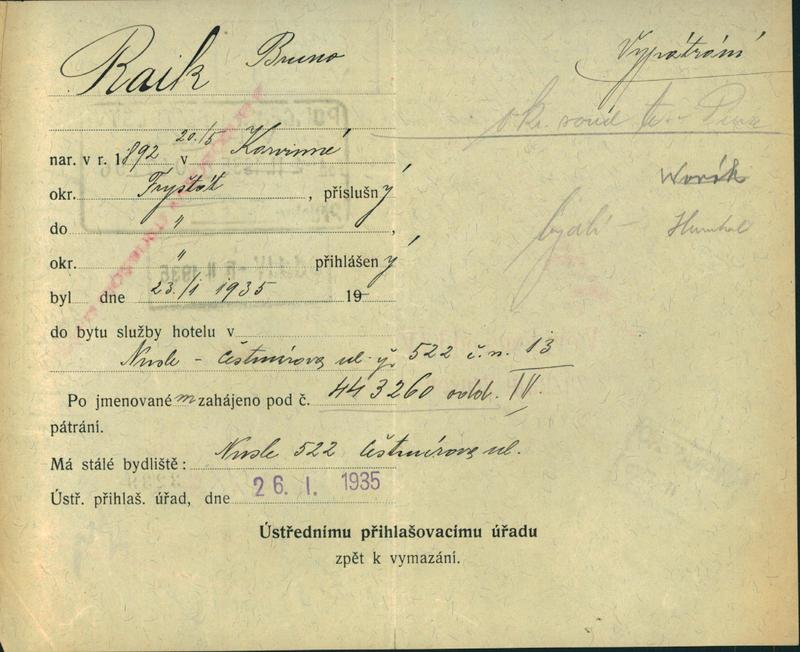 Raik Bruno
Vypátrání
okr. soud
nar. v r. 1892 20./5 v Karvinné
okr. Fryštát, příslušný
Worík
do "
bydlí - Humhal
okr. " přihlášený
byl dne 23./1 1935 19
do bytu služby hotelu v
Nusle - Čestmírova ul. č. 522 č. n. 13
Po jmenovaném zahájeno pod č. 443260 odd. IV.
pátrání.
Má stálé bydliště: Nusle 522 Čestmírova ul.
Ústř. přihlaš. úřad, dne 26. I. 1935
Ústřednímu přihlašovacímu úřadu
zpět k vymazání.